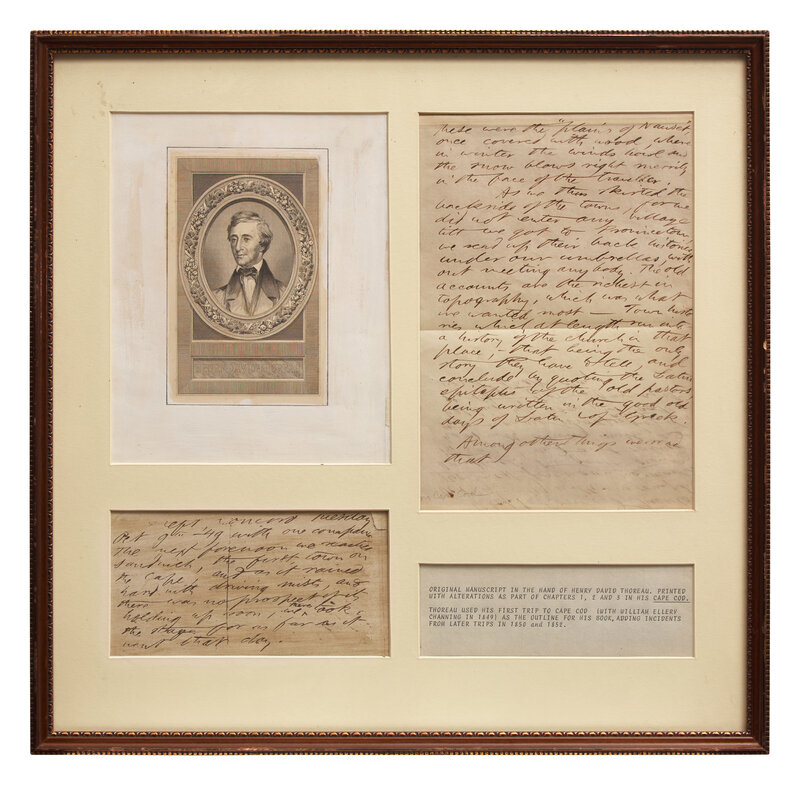 these were the "plains of Nauset,"
once covered with wood, where
in winter the winds howl and
the snow blows right merrily
in the face of the traveller.
As we thus skirted the
backside of the towns, for we
did not enter any village
till we got to Provincetown
we read up their back histories
under our umbrellas, with
out meeting any body. The old
accounts are the richest in
topography, which was what
we wanted most — Town histo
ries, which at length run into
a history of the church in that
place, — that being the only
story they have to tell, and
conclude by quoting the Latin
epitaphs of the old pastors
being written in the good old
days of Latin & of Greek.
Among other things we
that
Cape Cod
Left Concord Tuesday
Oct 9th — '49 with one companion
The next forenoon we reached
Sandwich, the first town on
the Cape, and as it rained
hard with driving mists, and
there was no prospect of its
holding up soon, we there took
the stage for as far as it
went that day.
ORIGINAL MANUSCRIPT IN THE HAND OF HENRY DAVID THOREAU. PRINTED
WITH ALTERATIONS AS PART OF CHAPTERS 1, 2 AND 3 IN HIS CAPE COD.
THOREAU USED HIS FIRST TRIP TO CAPE COD (WITH WILLIAM ELLERY
CHANNING IN 1849) AS THE OUTLINE FOR HIS BOOK, ADDING INCIDENTS
FROM LATER TRIPS IN 1850 and 1852.